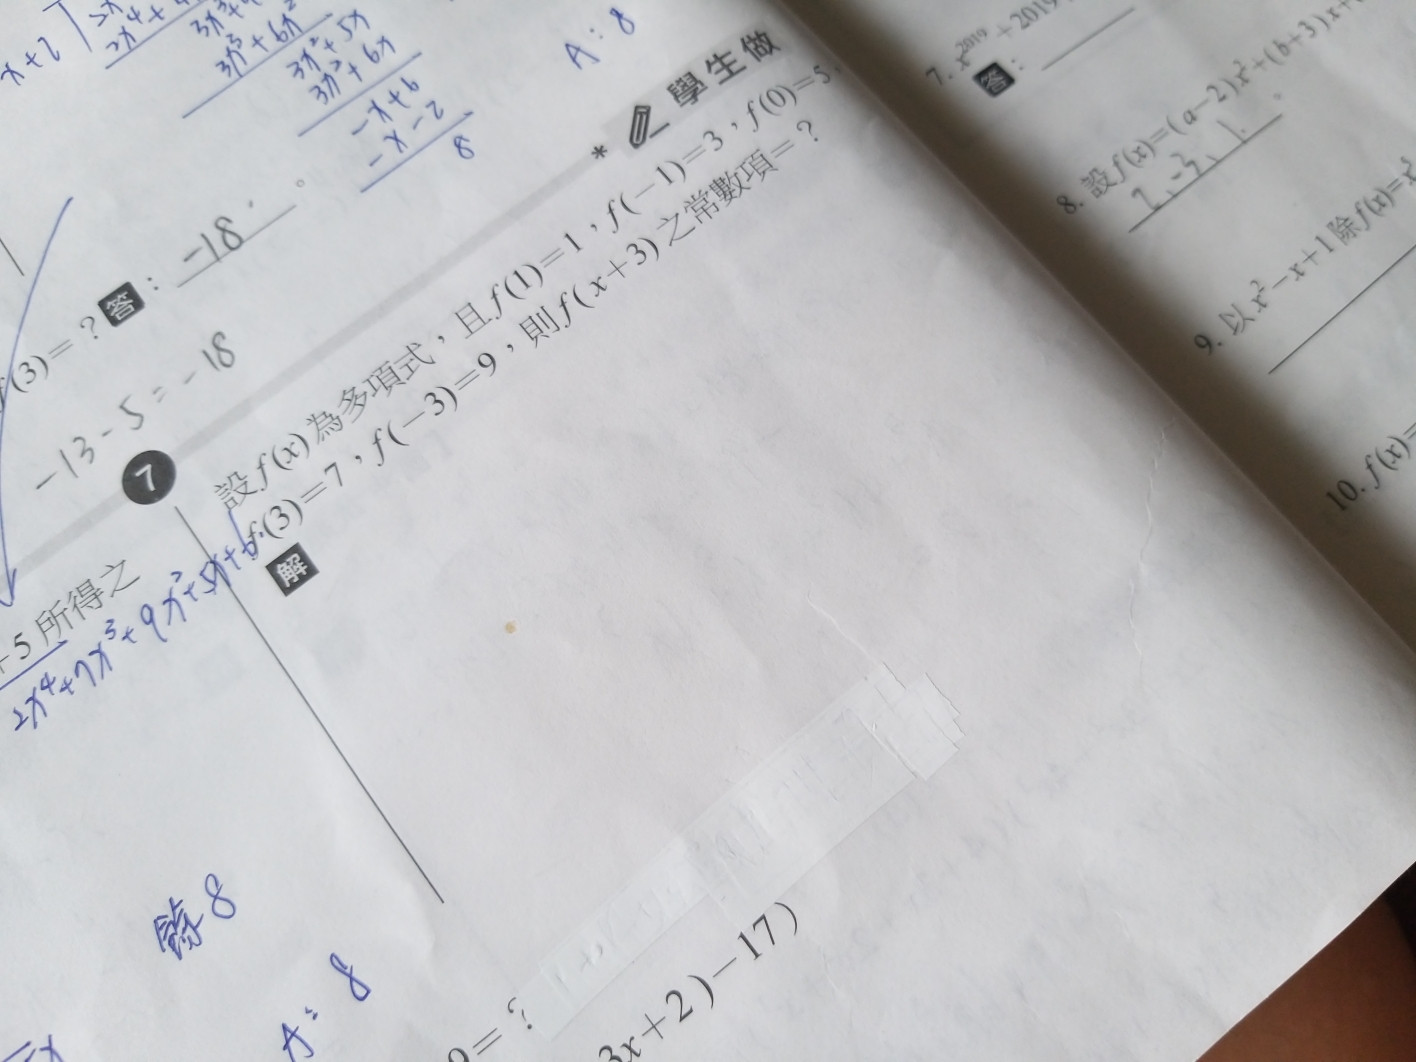 3x³+6x²
3x²+5x
3x²+6x
-x+6
-x-2
8
A：8
f(3)=？答：-18。
-13-5=-18
7
+5所得之
2x⁴+7x³+9x²+5x+6
餘8
A：8
＊學生做
設f(x)為多項式，且f(1)=1，f(-1)=3，f(0)=5，
f(3)=7，f(-3)=9，則f(x+3)之常數項=？
解
0=？
3x+2)-17)
7. x²⁰¹⁹+2019
答：
8. 設f(x)=(a-2)x²+(b+3)x+
2、-3、1。
9. 以x²-x+1除f(x)=x
10. f(x)=